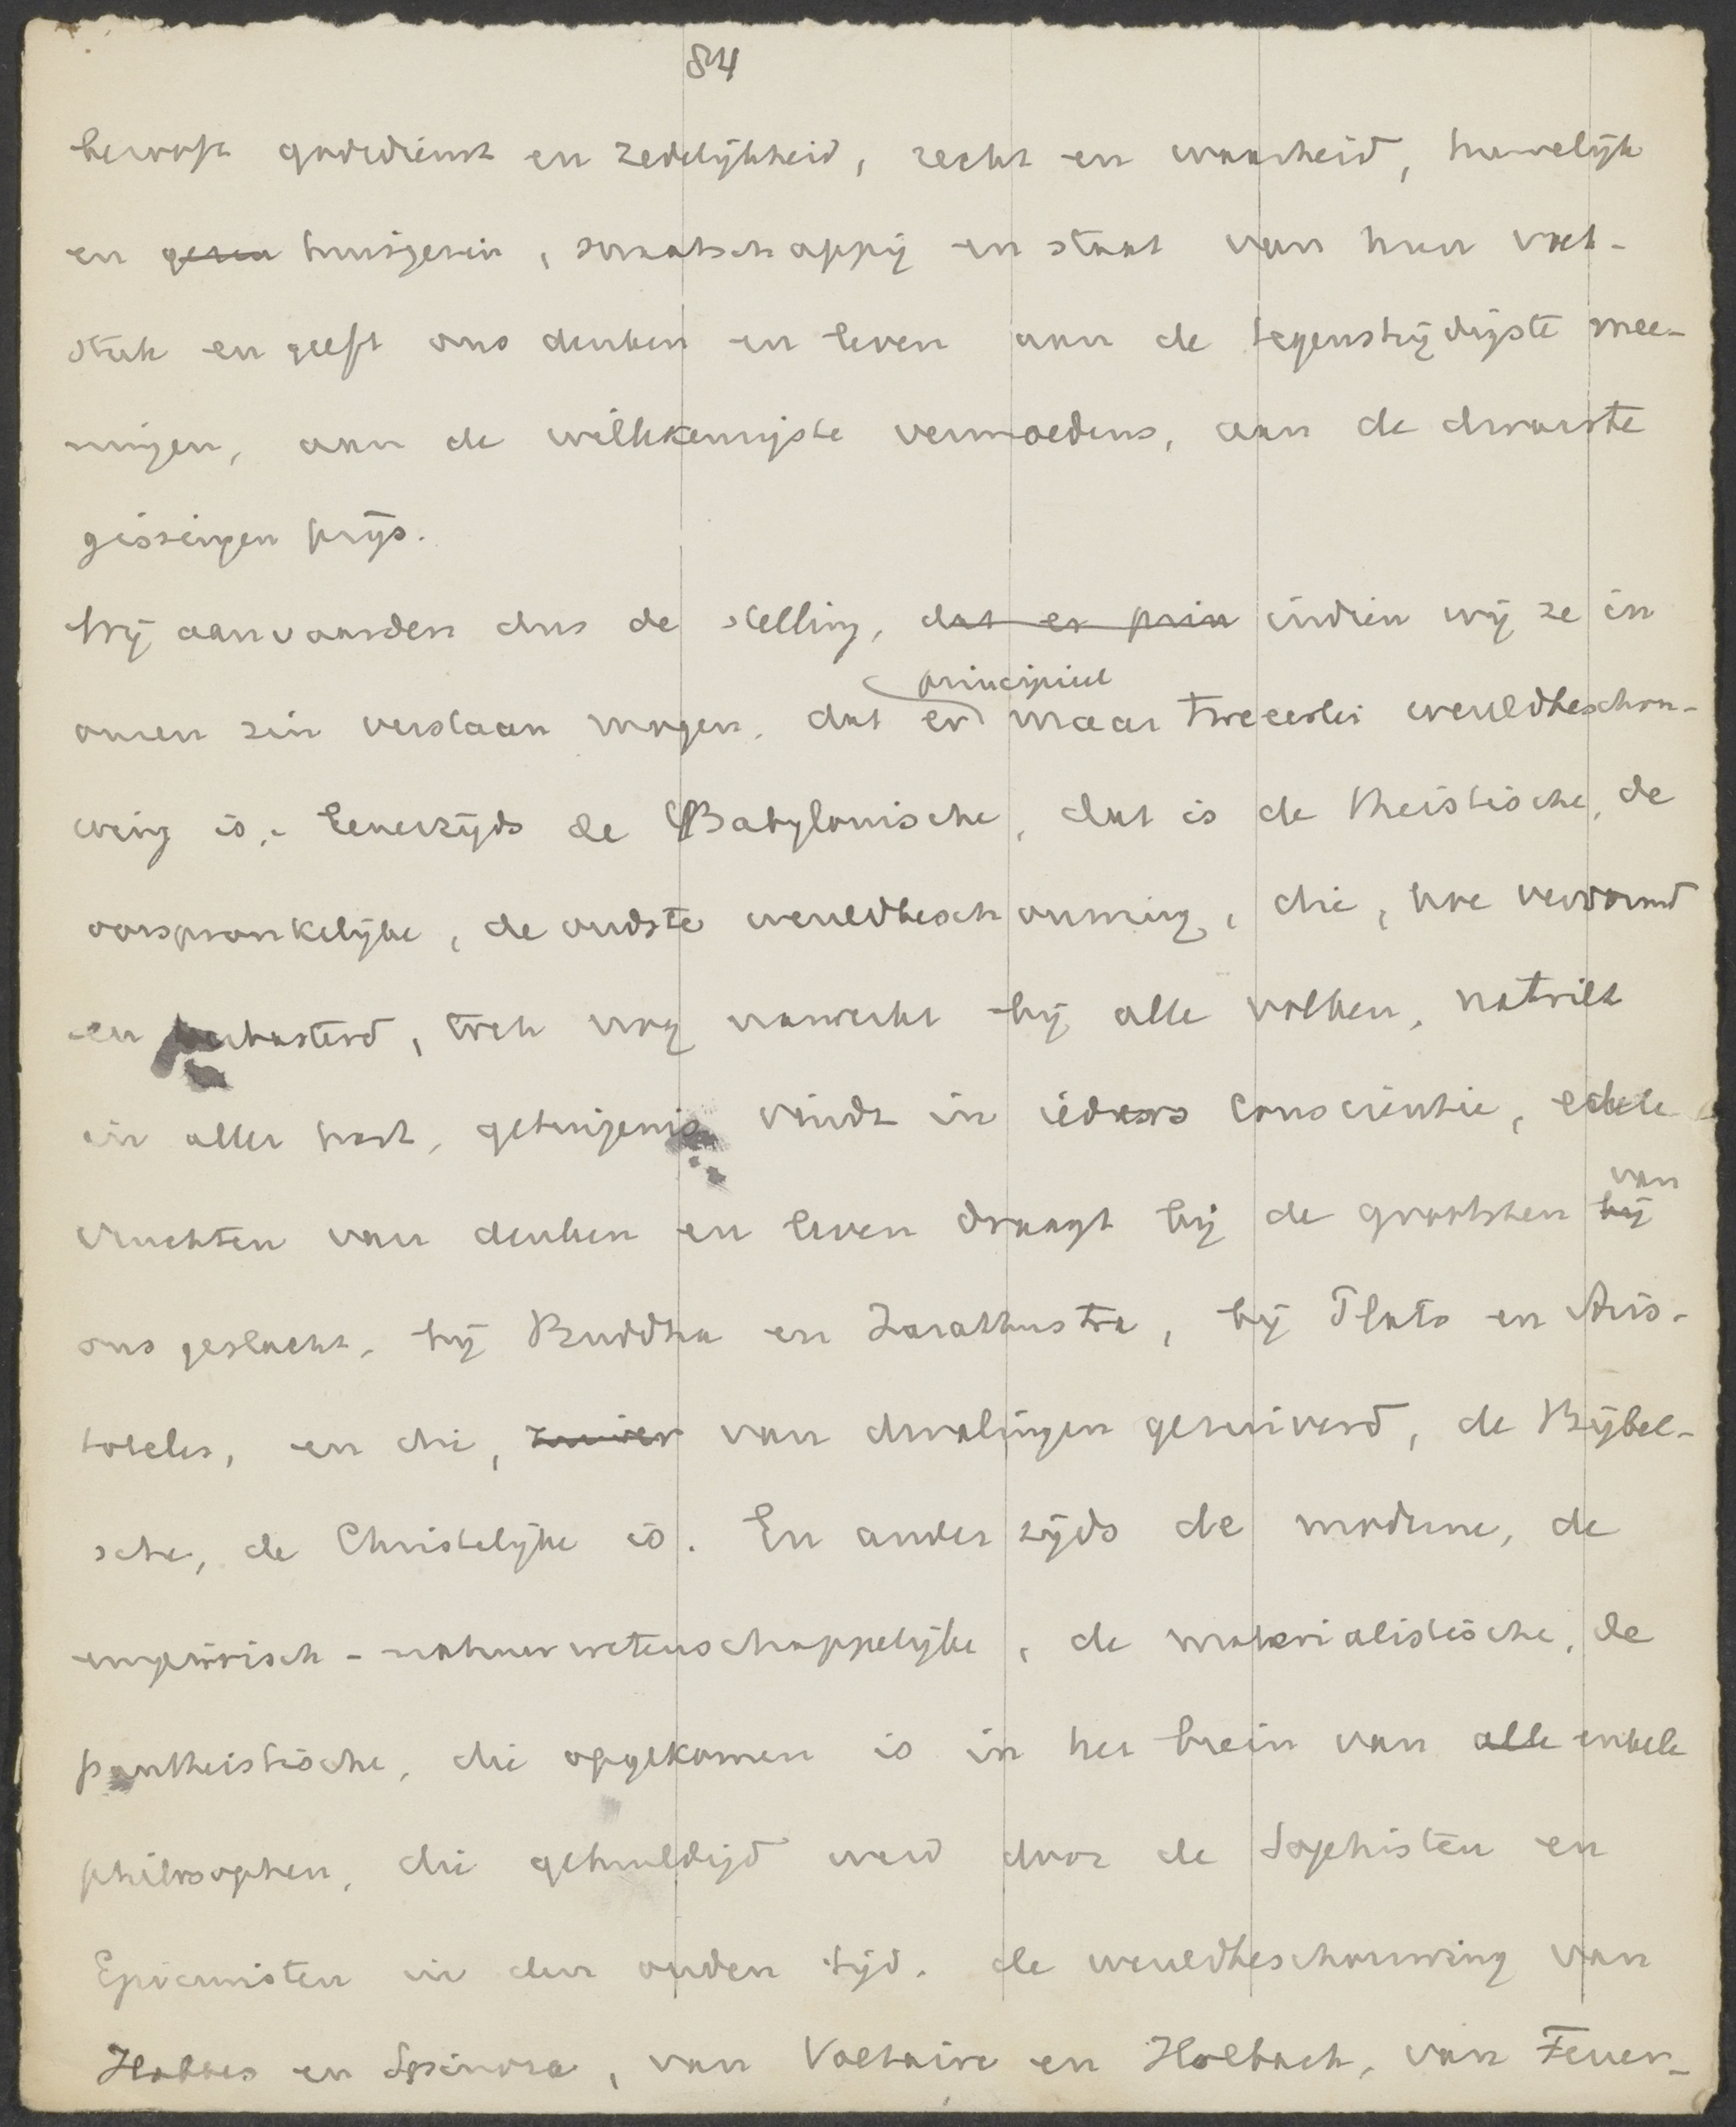 84
berooft godsdienst en zedelijkheid, recht en waarheid, huwelijk
en gezin huisgezin, maatschappij en staat van hun voet-
stuk en geeft ons denken en leven aan de tegenstrijdigste mee-
ningen, aan de willekeurigste vermoedens, aan de dwaaste
gissingen prijs.
Wij aanvaarden dus de stelling, dat er prin indien wij ze in
principieel
onzen zin verstaan mogen, dat er maar tweeërlei wereldbeschou-
wing is. Eenerzijds de Babylonische, dat is de theistische, de
oorspronkelijke, de oudste wereldbeschouwing, die, hoe verward
en verbasterd, toch nog nawerkt bij alle volken, natrilt
in aller hart, getuigenis vindt in ieders conscientie, edele
van
vruchten van denken en leven draagt bij de grootsten bij
ons geslacht, bij Buddha en Zarathustra, bij Plato en Aris-
toteles, en die, zuiver van dwalingen gezuiverd, de Bijbel-
sche, de Christelijke is. En anderzijds de moderne, de
empirisch-natuurwetenschappelijke, de materialistische, de
pantheistische, die opgekomen is in het brein van alle enkele
philosophen, die gehuldigd werd door de Sophisten en
Epicuristen in den ouden tijd, de wereldbeschouwing van
Hobbes en Spinoza, van Voltaire en Holbach, van Feuer-